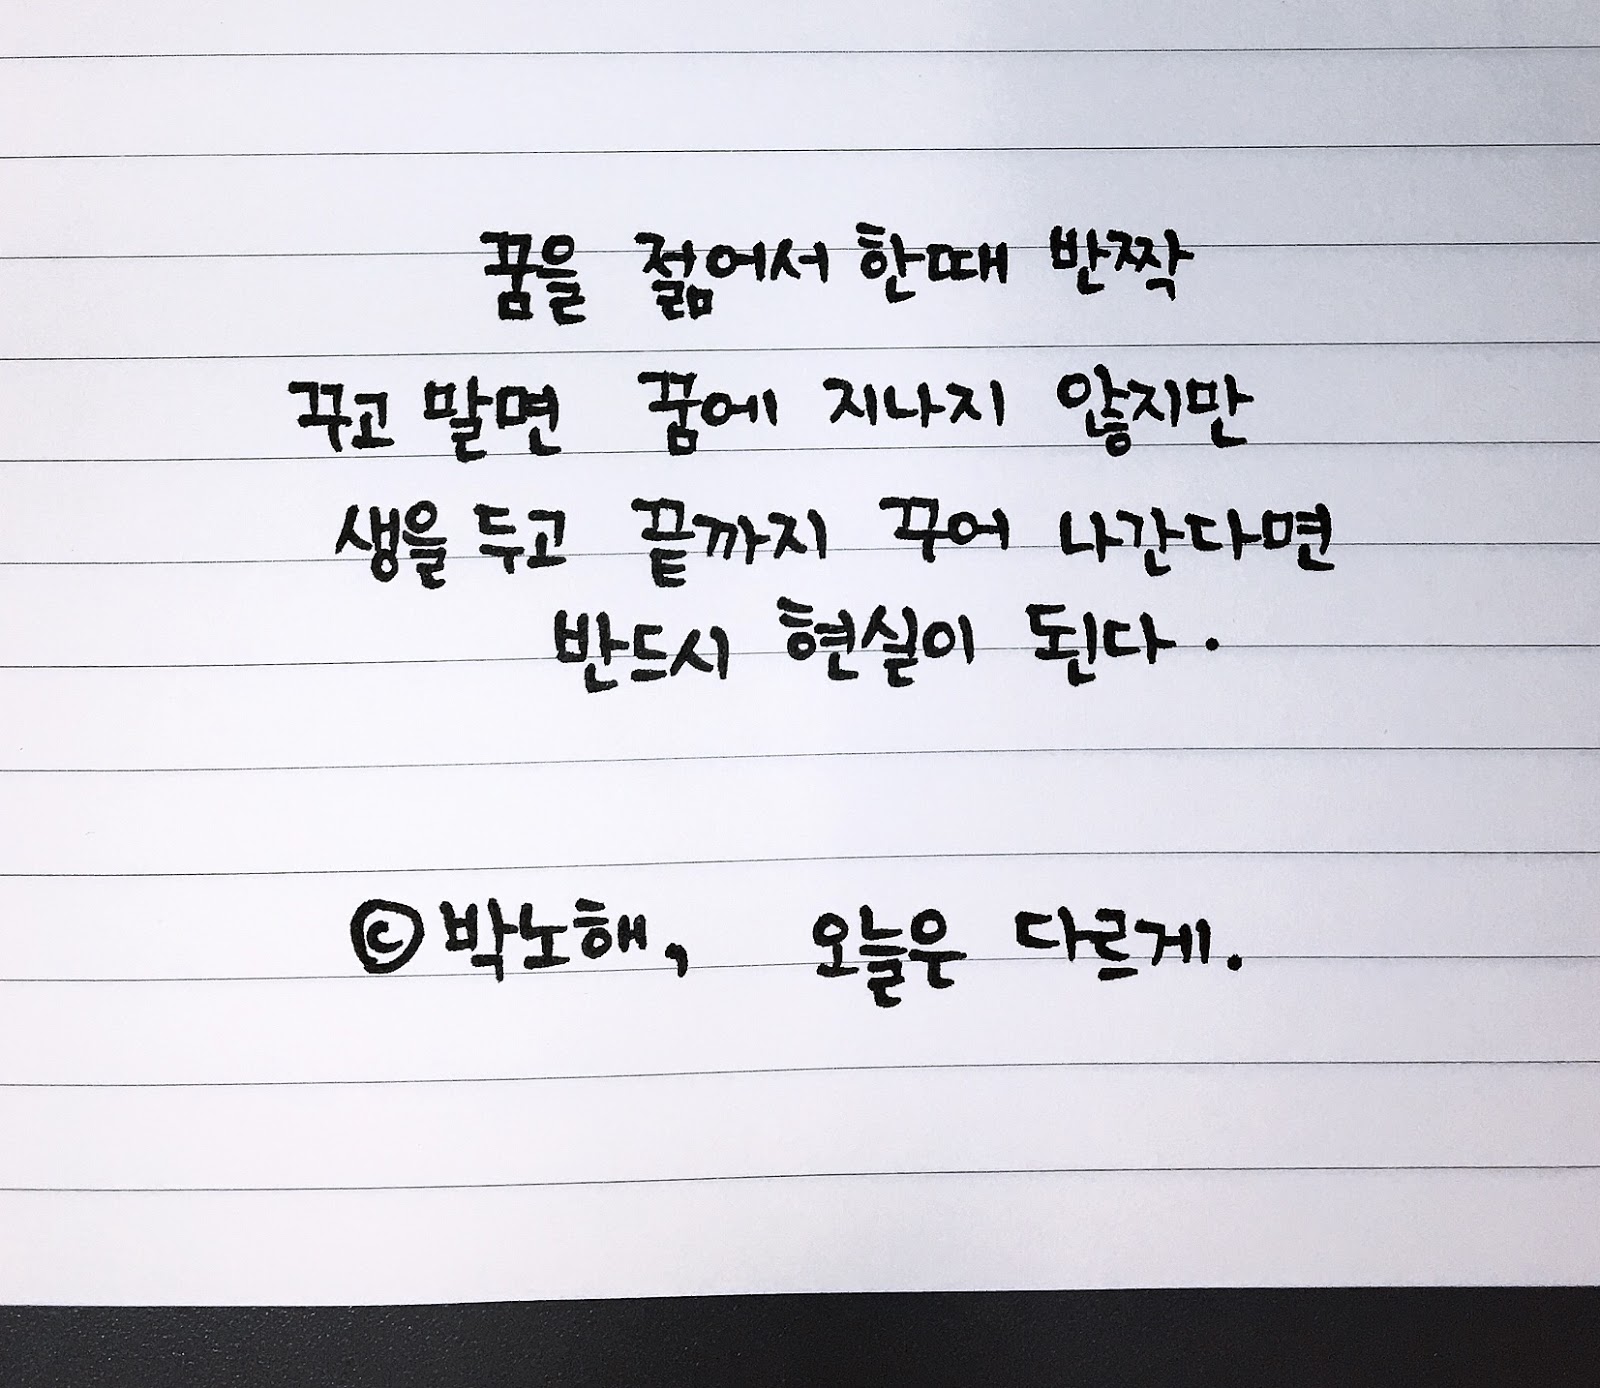 꿈을 젊어서 한때 반짝
꾸고 말면 꿈에 지나지 않지만
생을 두고 끝까지 꾸어 나간다면
반드시 현실이 된다.
©박노해, 오늘은 다르게.